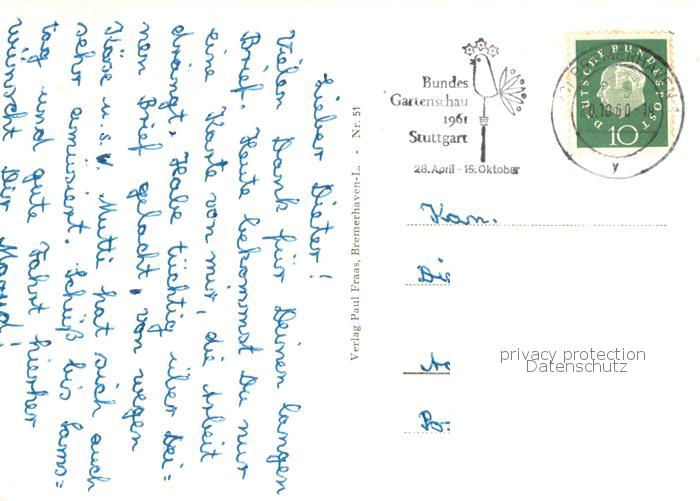 Lieber Dieter!
Vielen Dank für Deinen langen
Brief. Heute bekommst Du nur
eine Karte von mir, die Arbeit
drängt. Habe tüchtig über Dei=
nen Brief gelacht, von wegen
Käse u.s.w. Mutti hat sich auch
sehr amüsiert. Tschüß bis Sams=
tag und gute Fahrt hierher
wünscht Dir
Verlag Paul Fraas, Bremerhaven-L. - Nr. 51
Bundes
Gartenschau
1961
Stuttgart
28. April - 15. Oktober
DEUTSCHE BUNDESPOST
10
20.10.60
y
Kan.
privacy protection
Datenschutz